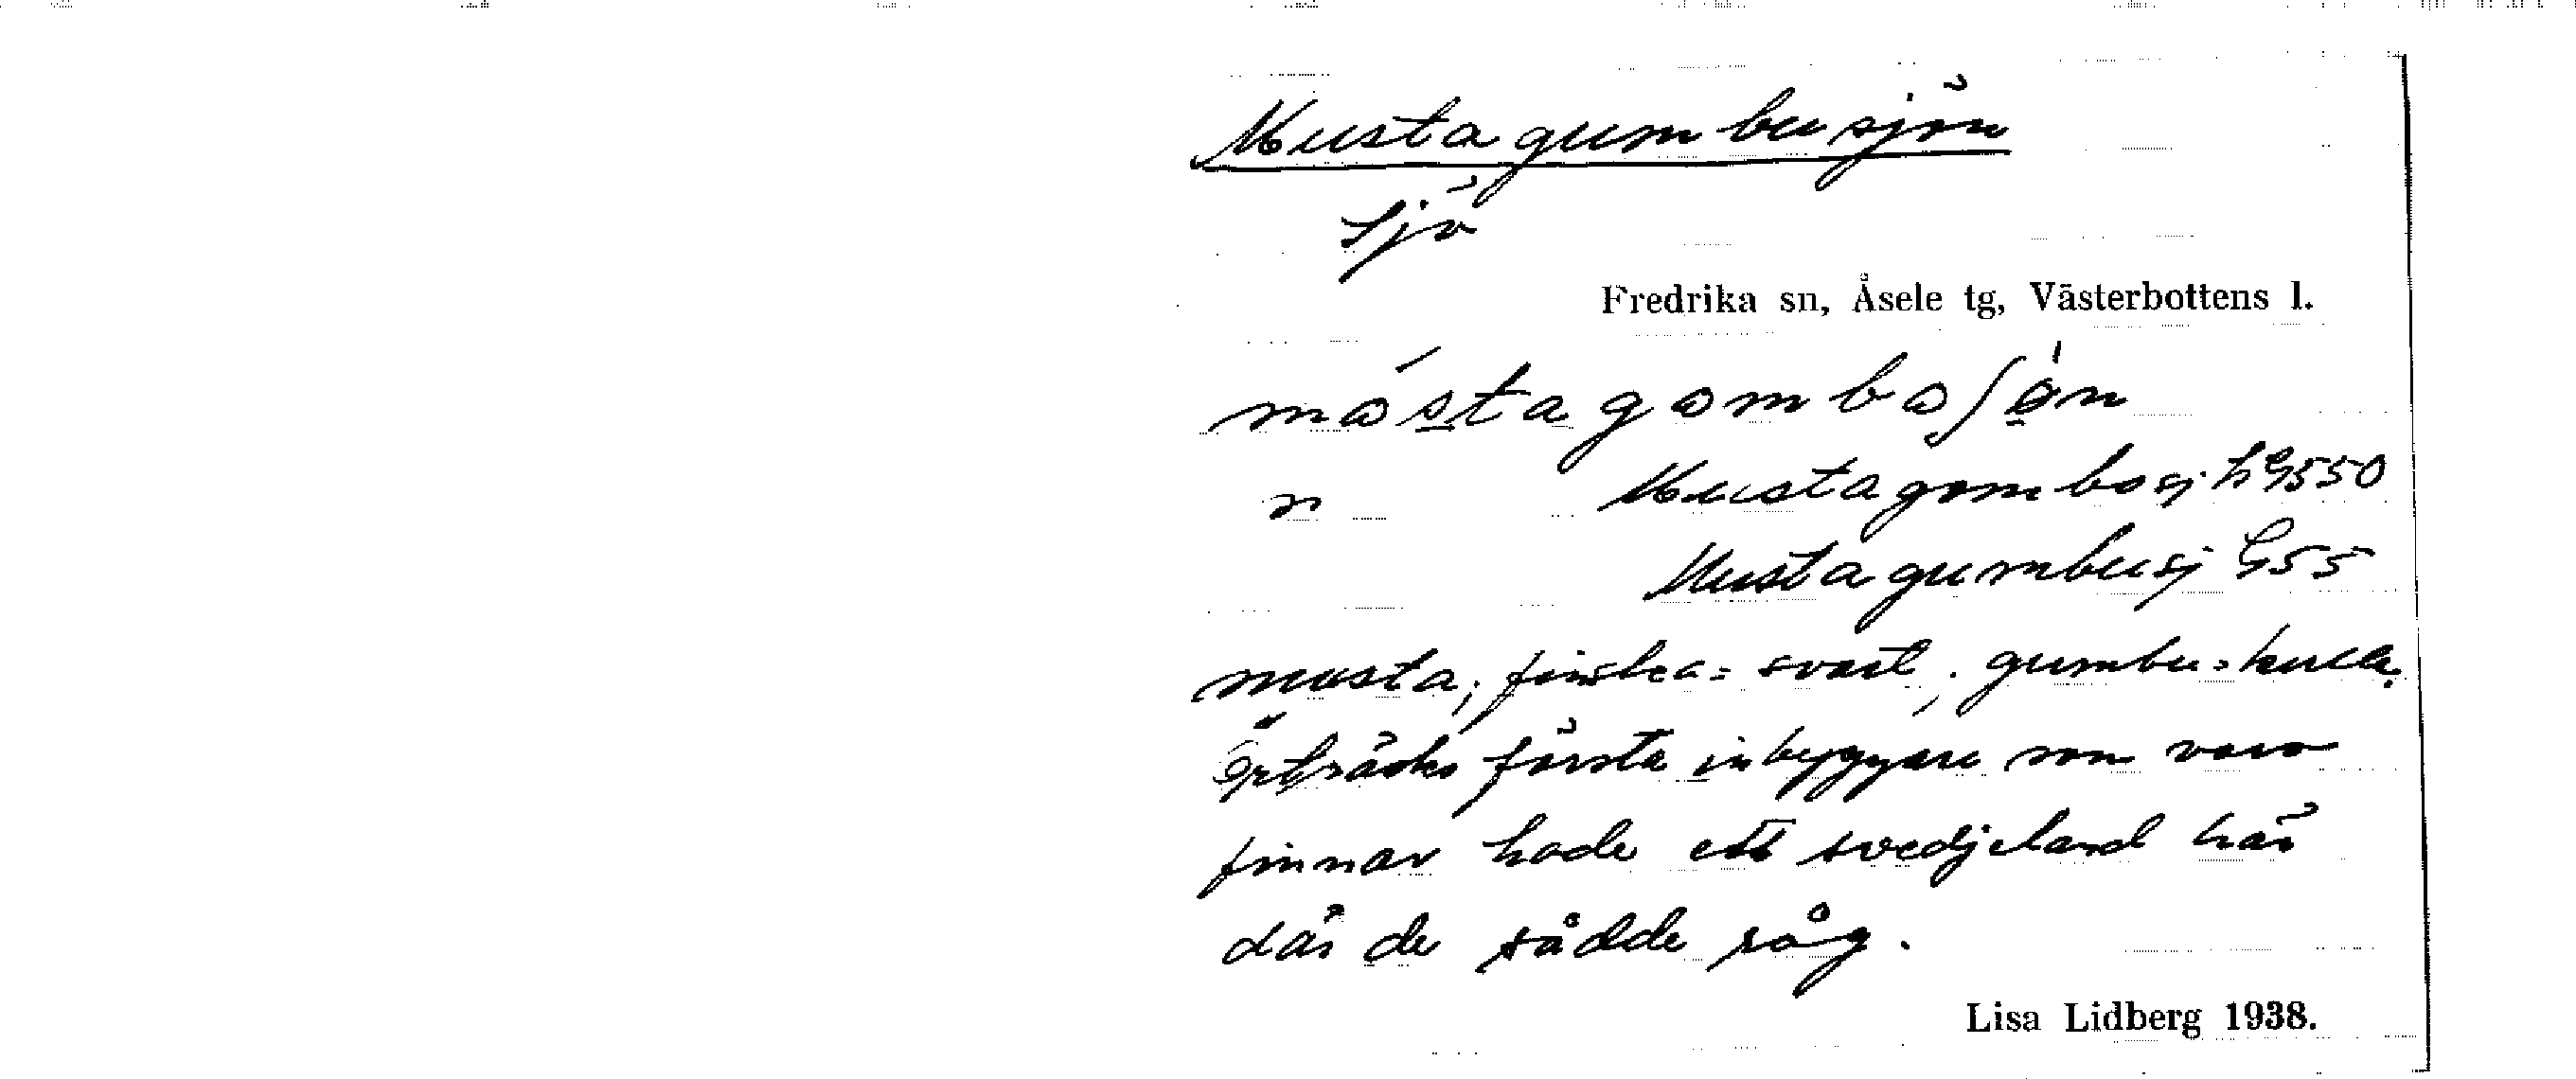 Mustagumbusjön
Sjö
Fredrika sn, Åsele tg, Västerbottens l.
n Mustagombosj
Mustagumbusj G55
musta, finska = svart, gumbu = kulle.
Örträsks första inbyggare som voro
finnar hade ett svedjeland här
där de sådde råg.
Lisa Lidberg 1938.